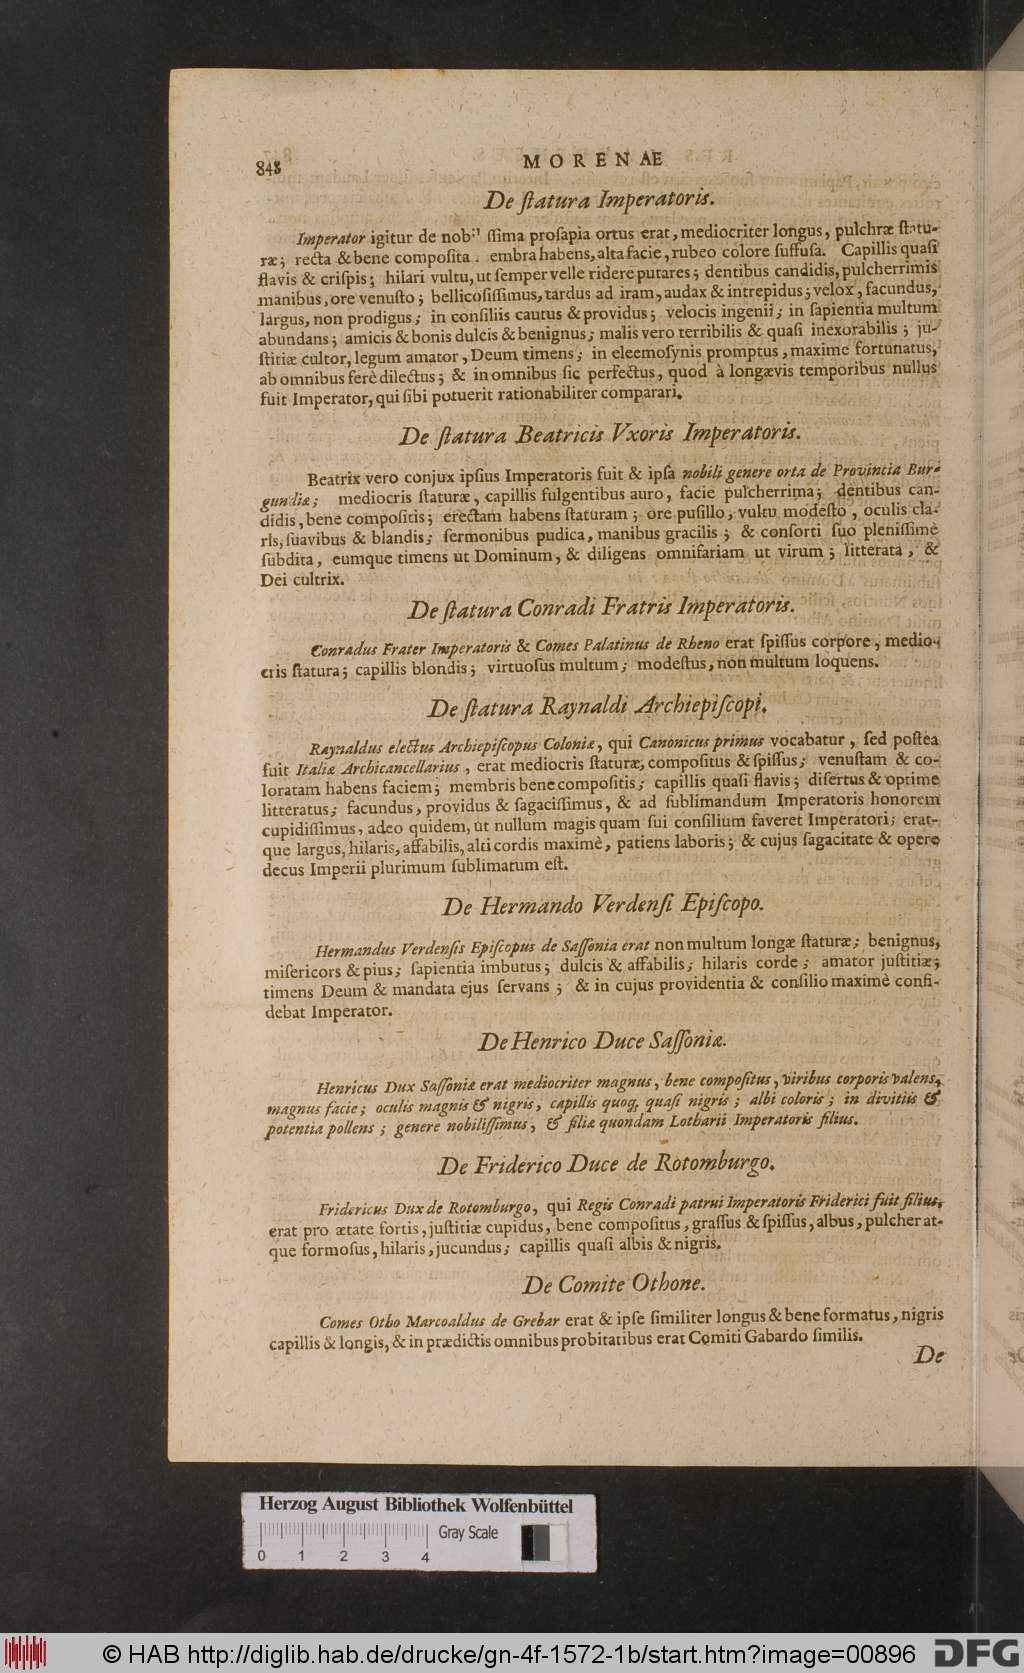 848
MORENAE
De ſtatura Imperatoris.
Imperator igitur de nob ſſima proſapia ortus erat, mediocriter longus, pulchræ ſtatu-
ræ; recta & bene compoſita embra habens, alta facie, rubeo colore ſuffuſa. Capillis quaſi
flavis & criſpis; hilari vultu, ut ſemper velle ridere putares; dentibus candidis, pulcherrimis
manibus, ore venuſto; bellicoſiſſimus, tardus ad iram, audax & intrepidus; velox, facundus,
largus, non prodigus; in conſiliis cautus & providus; velocis ingenii; in ſapientia multum
abundans; amicis & bonis dulcis & benignus; malis vero terribilis & quaſi inexorabilis; ju-
ſtitiæ cultor, legum amator, Deum timens; in eleemoſynis promptus, maxime fortunatus,
ab omnibus ferè dilectus; & in omnibus ſic perfectus, quod à longævis temporibus nullus
fuit Imperator, qui ſibi potuerit rationabiliter comparari.
De ſtatura Beatricis Vxoris Imperatoris.
Beatrix vero conjux ipſius Imperatoris fuit & ipſa nobili genere orta de Provincia Bur-
gundiæ; mediocris ſtaturæ, capillis fulgentibus auro, facie pulcherrima; dentibus can-
didis, bene compoſitis; erectam habens ſtaturam; ore puſillo, vultu modeſto, oculis cla-
ris, ſuavibus & blandis; ſermonibus pudica, manibus gracilis; & conſorti ſuo pleniſſimè
ſubdita, eumque timens ut Dominum, & diligens omnifariam ut virum; litterata, &
Dei cultrix.
De ſtatura Conradi Fratris Imperatoris.
Conradus Frater Imperatoris & Comes Palatinus de Rheno erat ſpiſſus corpore, medio-
cris ſtatura; capillis blondis; virtuoſus multum; modeſtus, non multum loquens.
De ſtatura Raynaldi Archiepiſcopi.
Raynaldus electus Archiepiſcopus Coloniæ, qui Canonicus primus vocabatur, ſed poſtea
fuit Italiæ Archicancellarius, erat mediocris ſtaturæ, compoſitus & ſpiſſus; venuſtam & co-
loratam habens faciem; membris bene compoſitis; capillis quaſi flavis; diſertus & optime
litteratus; facundus, providus & ſagaciſſimus, & ad ſublimandum Imperatoris honorem
cupidiſſimus, adeo quidem, ut nullum magis quam ſui conſilium faveret Imperatori; erat-
que largus, hilaris, affabilis, alti cordis maximè, patiens laboris; & cujus ſagacitate & opere
decus Imperii plurimum ſublimatum eſt.
De Hermando Verdenſi Epiſcopo.
Hermandus Verdenſis Epiſcopus de Saſſonia erat non multum longæ ſtaturæ; benignus,
miſericors & pius; ſapientia imbutus; dulcis & affabilis; hilaris corde; amator juſtitiæ;
timens Deum & mandata ejus ſervans; & in cujus providentia & conſilio maximè confi-
debat Imperator.
De Henrico Duce Saſſoniæ.
Henricus Dux Saſſoniæ erat mediocriter magnus, bene compoſitus, viribus corporis valens,
magnus facie; oculis magnis & nigris, capillis quoq; quaſi nigris; albi coloris; in divitiis &
potentia pollens; genere nobiliſſimus, & filiæ quondam Lotharii Imperatoris filius.
De Friderico Duce de Rotomburgo.
Fridericus Dux de Rotomburgo, qui Regis Conradi patrui Imperatoris Friderici fuit filius,
erat pro ætate fortis, juſtitiæ cupidus, bene compoſitus, graſſus & ſpiſſus, albus, pulcher at-
que formoſus, hilaris, jucundus; capillis quaſi albis & nigris.
De Comite Othone.
Comes Otho Marcoaldus de Grebar erat & ipſe ſimiliter longus & bene formatus, nigris
capillis & longis, & in prædictis omnibus probitatibus erat Comiti Gabardo ſimilis.
De
Herzog August Bibliothek Wolfenbüttel
Gray Scale
0 1 2 3 4
© HAB http://diglib.hab.de/drucke/gn-4f-1572-1b/start.htm?image=00896
DFG